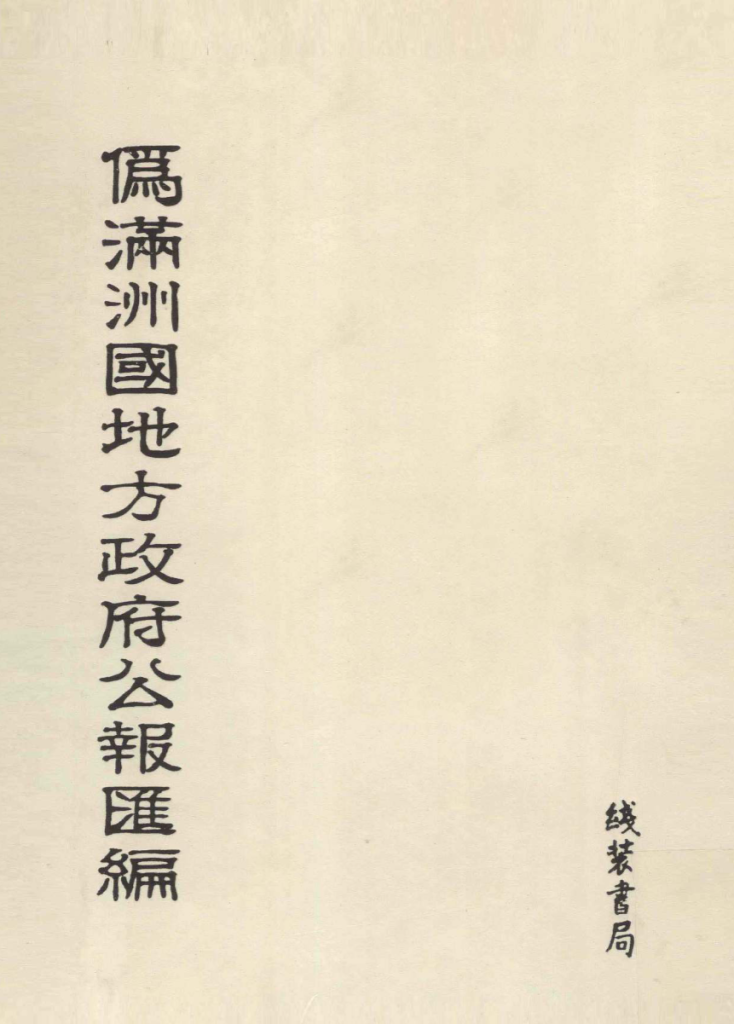 偽滿洲國地方政府公報匯編
綫装書局